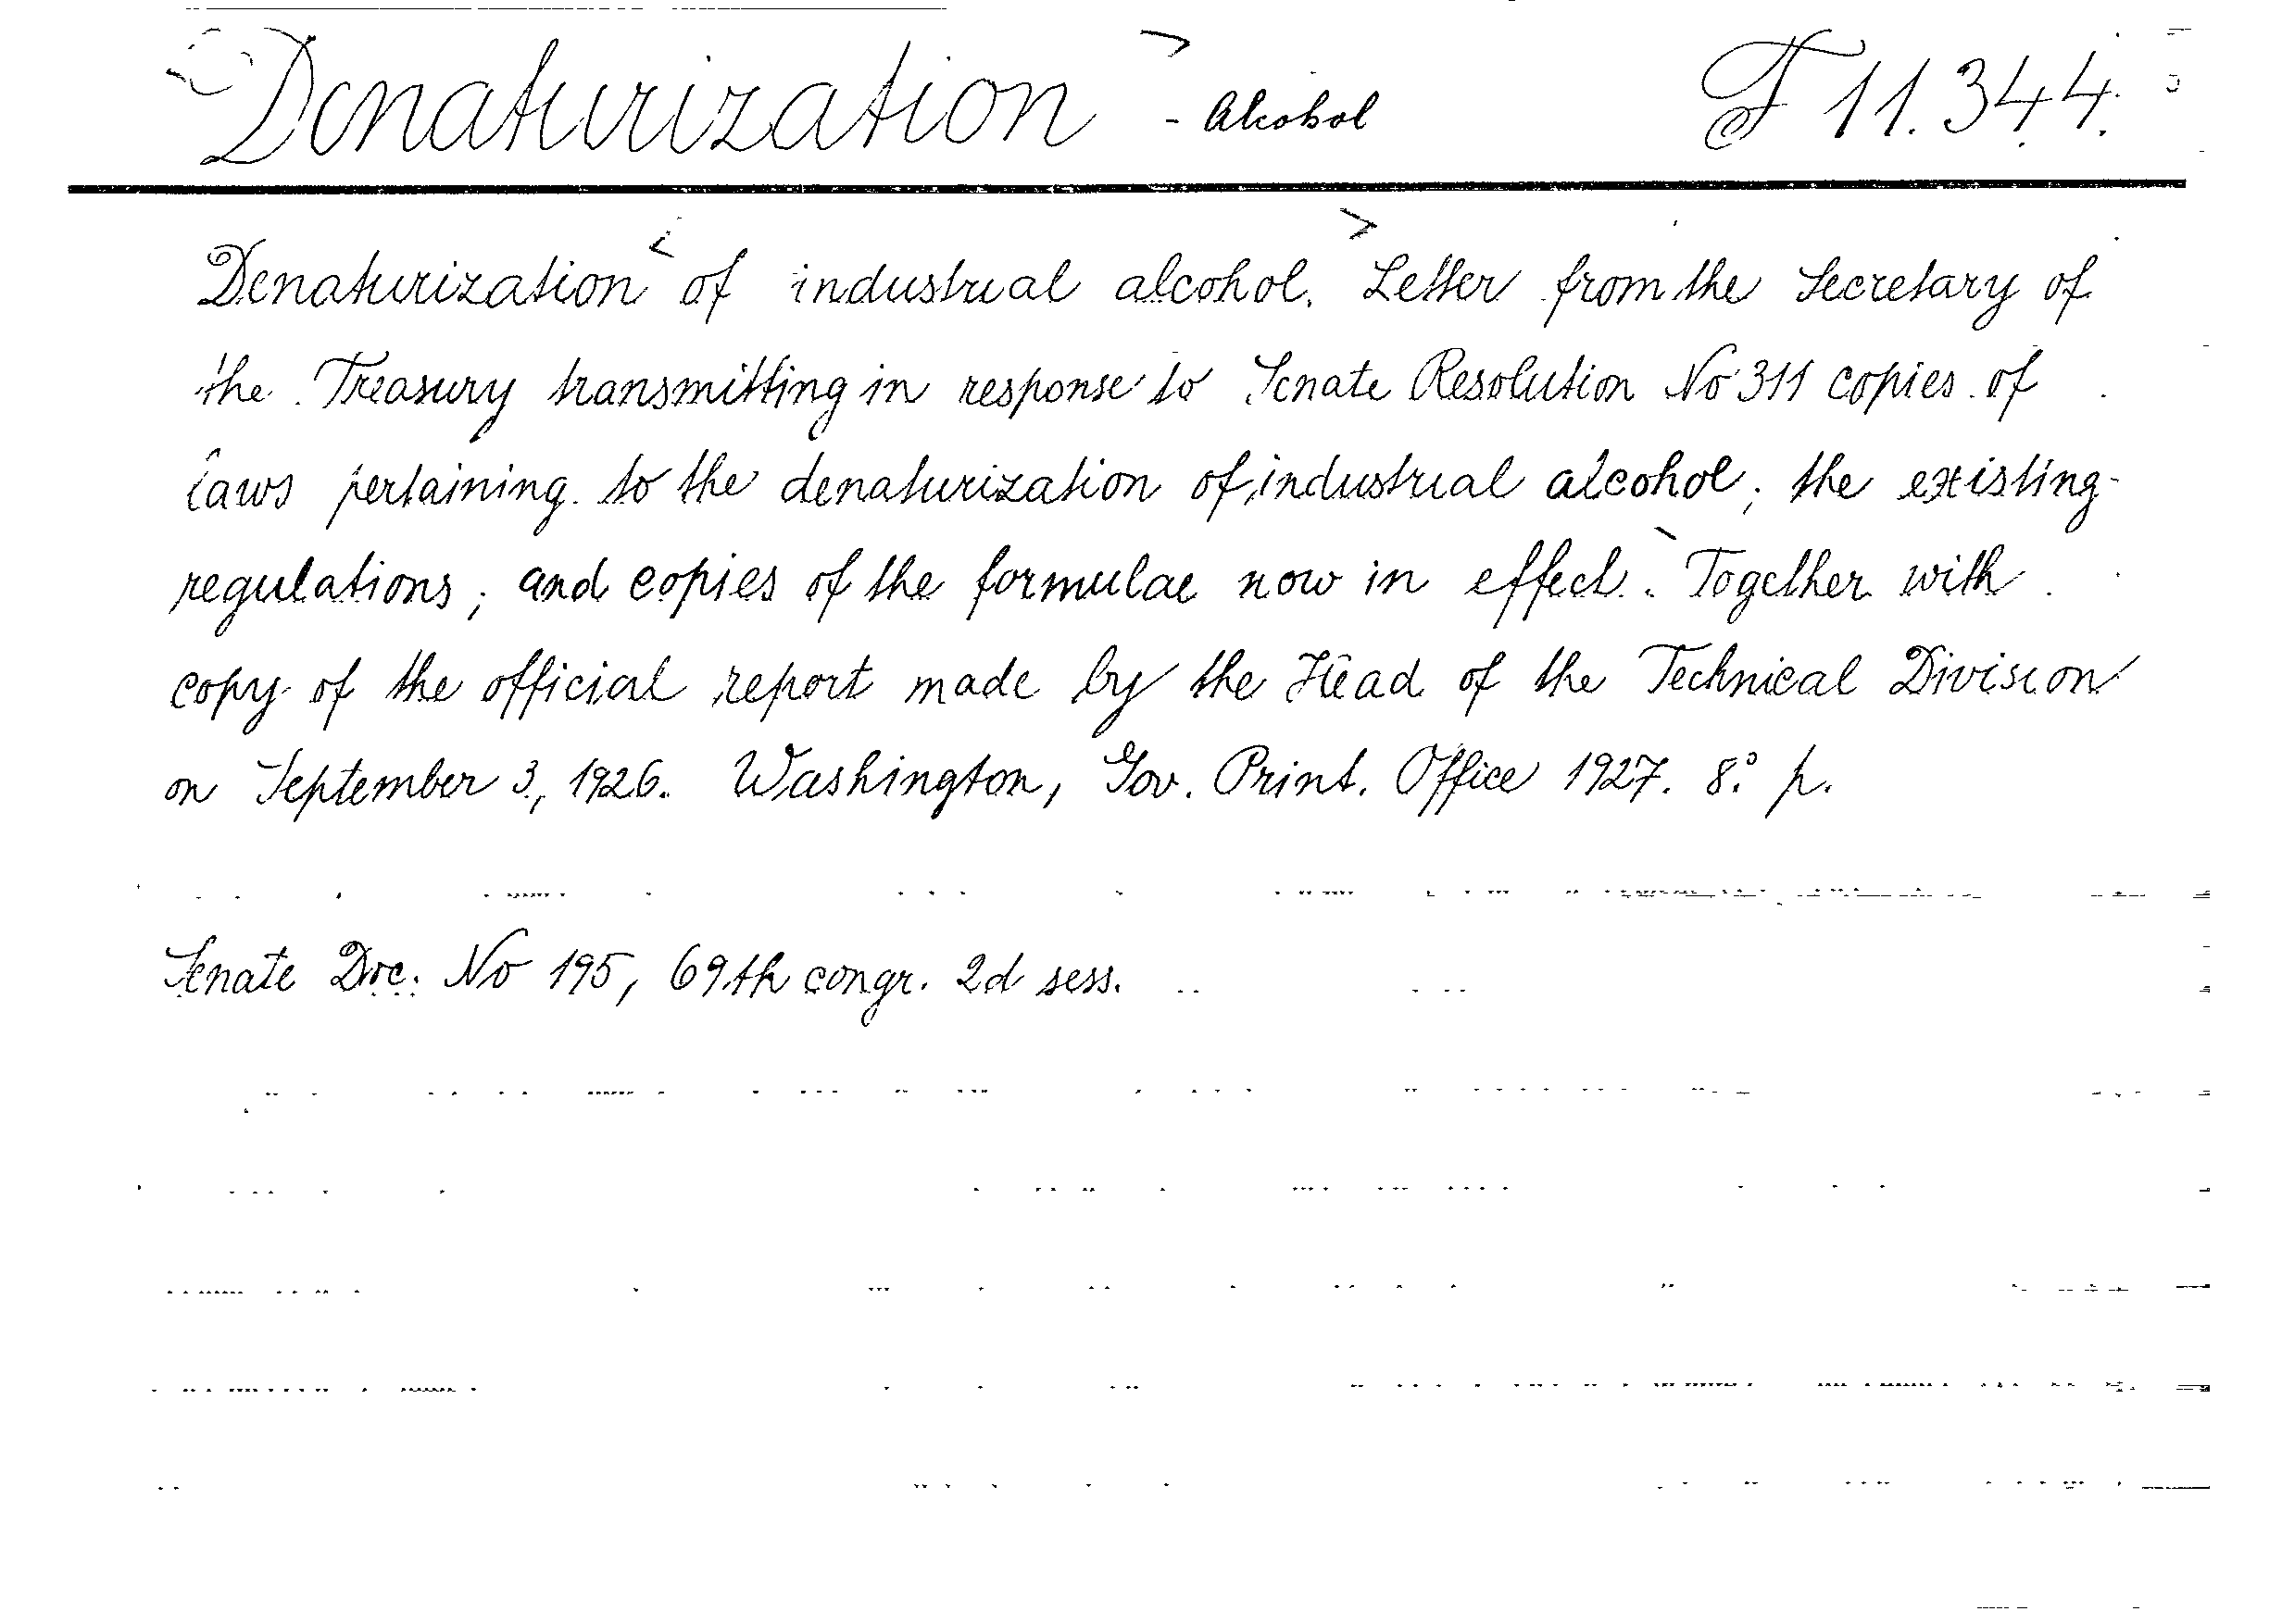 Denaturization - Alcohol F 11.344.
Denaturization of industrial alcohol. Letter from the Secretary of
the Treasury transmitting in response to Senate Resolution No 311 copies of
laws pertaining to the denaturization of industrial alcohol; the existing
regulations; and copies of the formulae now in effect. Together with
copy of the official report made by the Head of the Technical Division
on September 3, 1926. Washington, Gov. Print. Office 1927. 8° p.
Senate Doc. No 195, 69th congr. 2d sess.